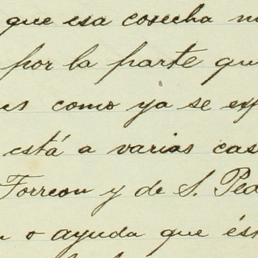 que esa cosecha
por la parte qu
us como ya se esp
está a varias cas
Torreon y de S. Ped
o ayuda que és